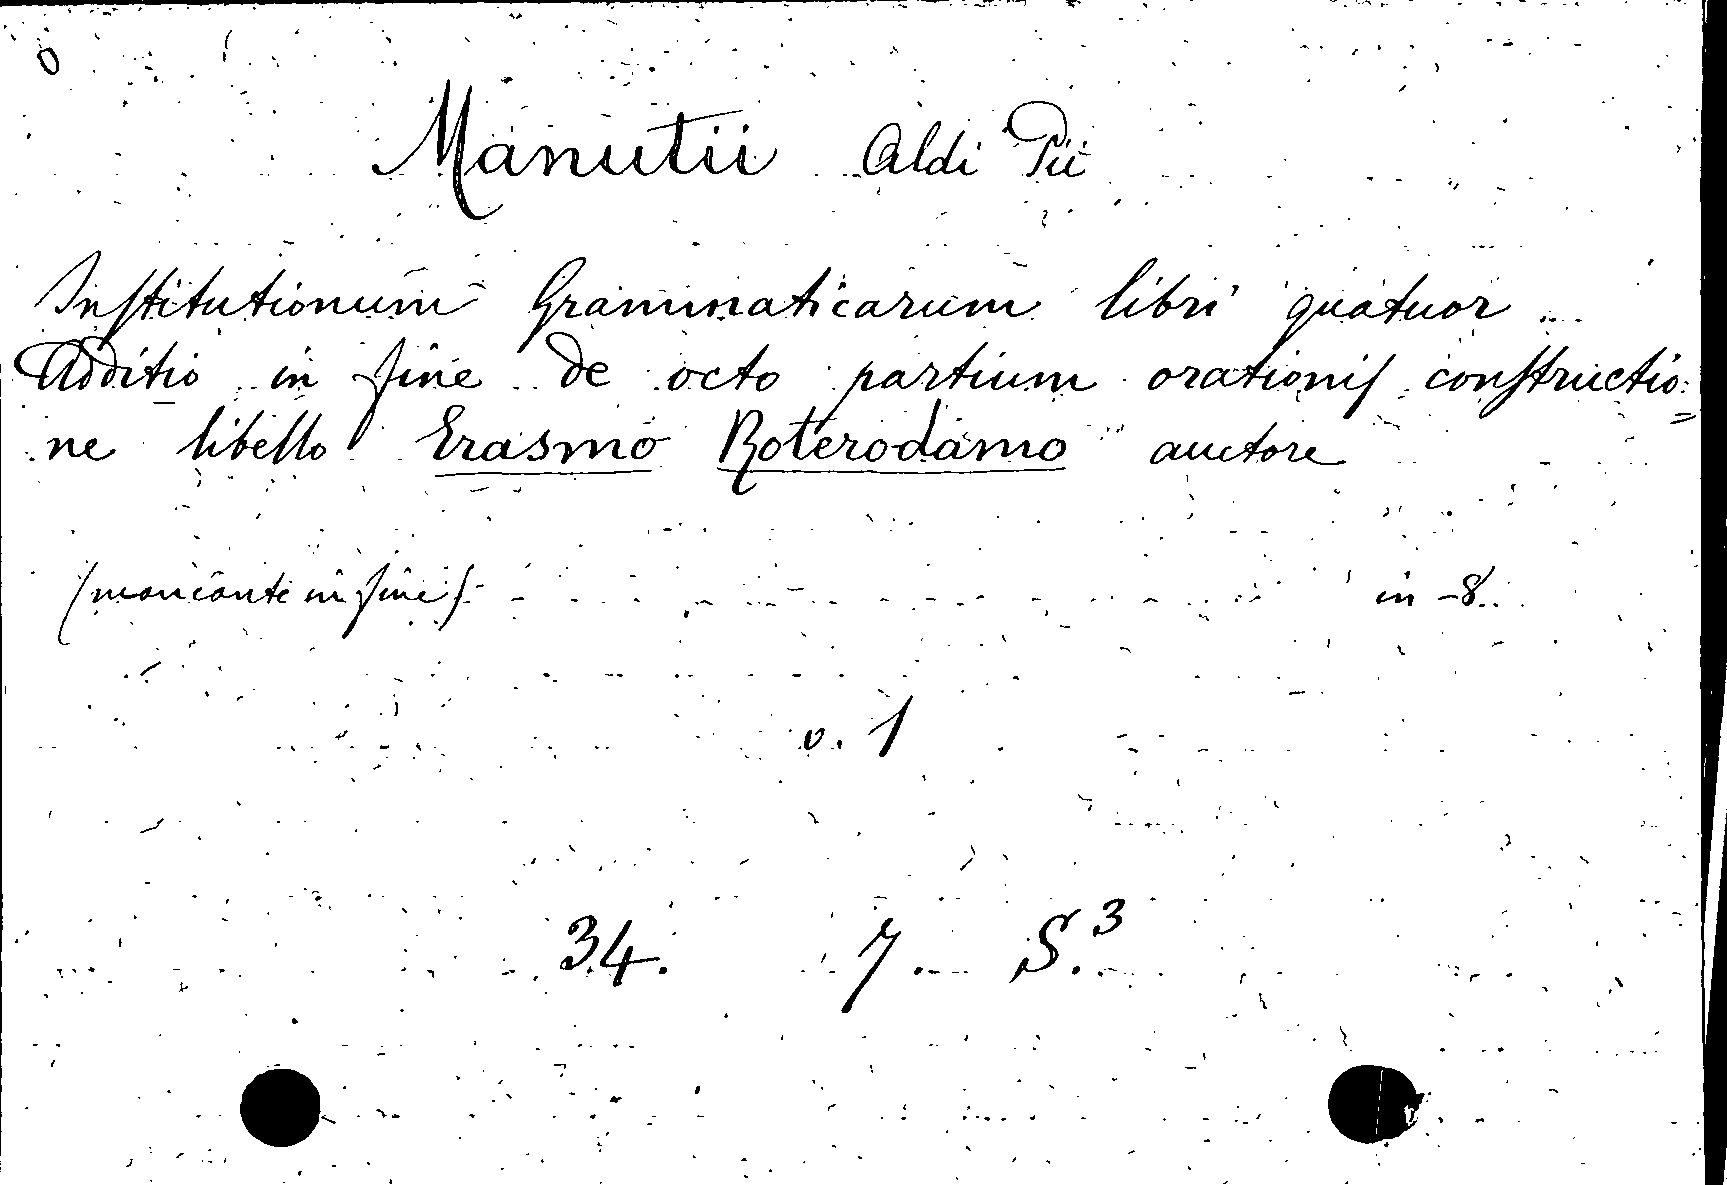 Manutii Aldi Pii
Institutionum Grammaticarum libri quatuor
Additio in fine de octo partium orationis constructio=
ne libello Erasmo Roterodamo auctore
(mancante in fine) in-8.
v. 1
34. 7. S.3